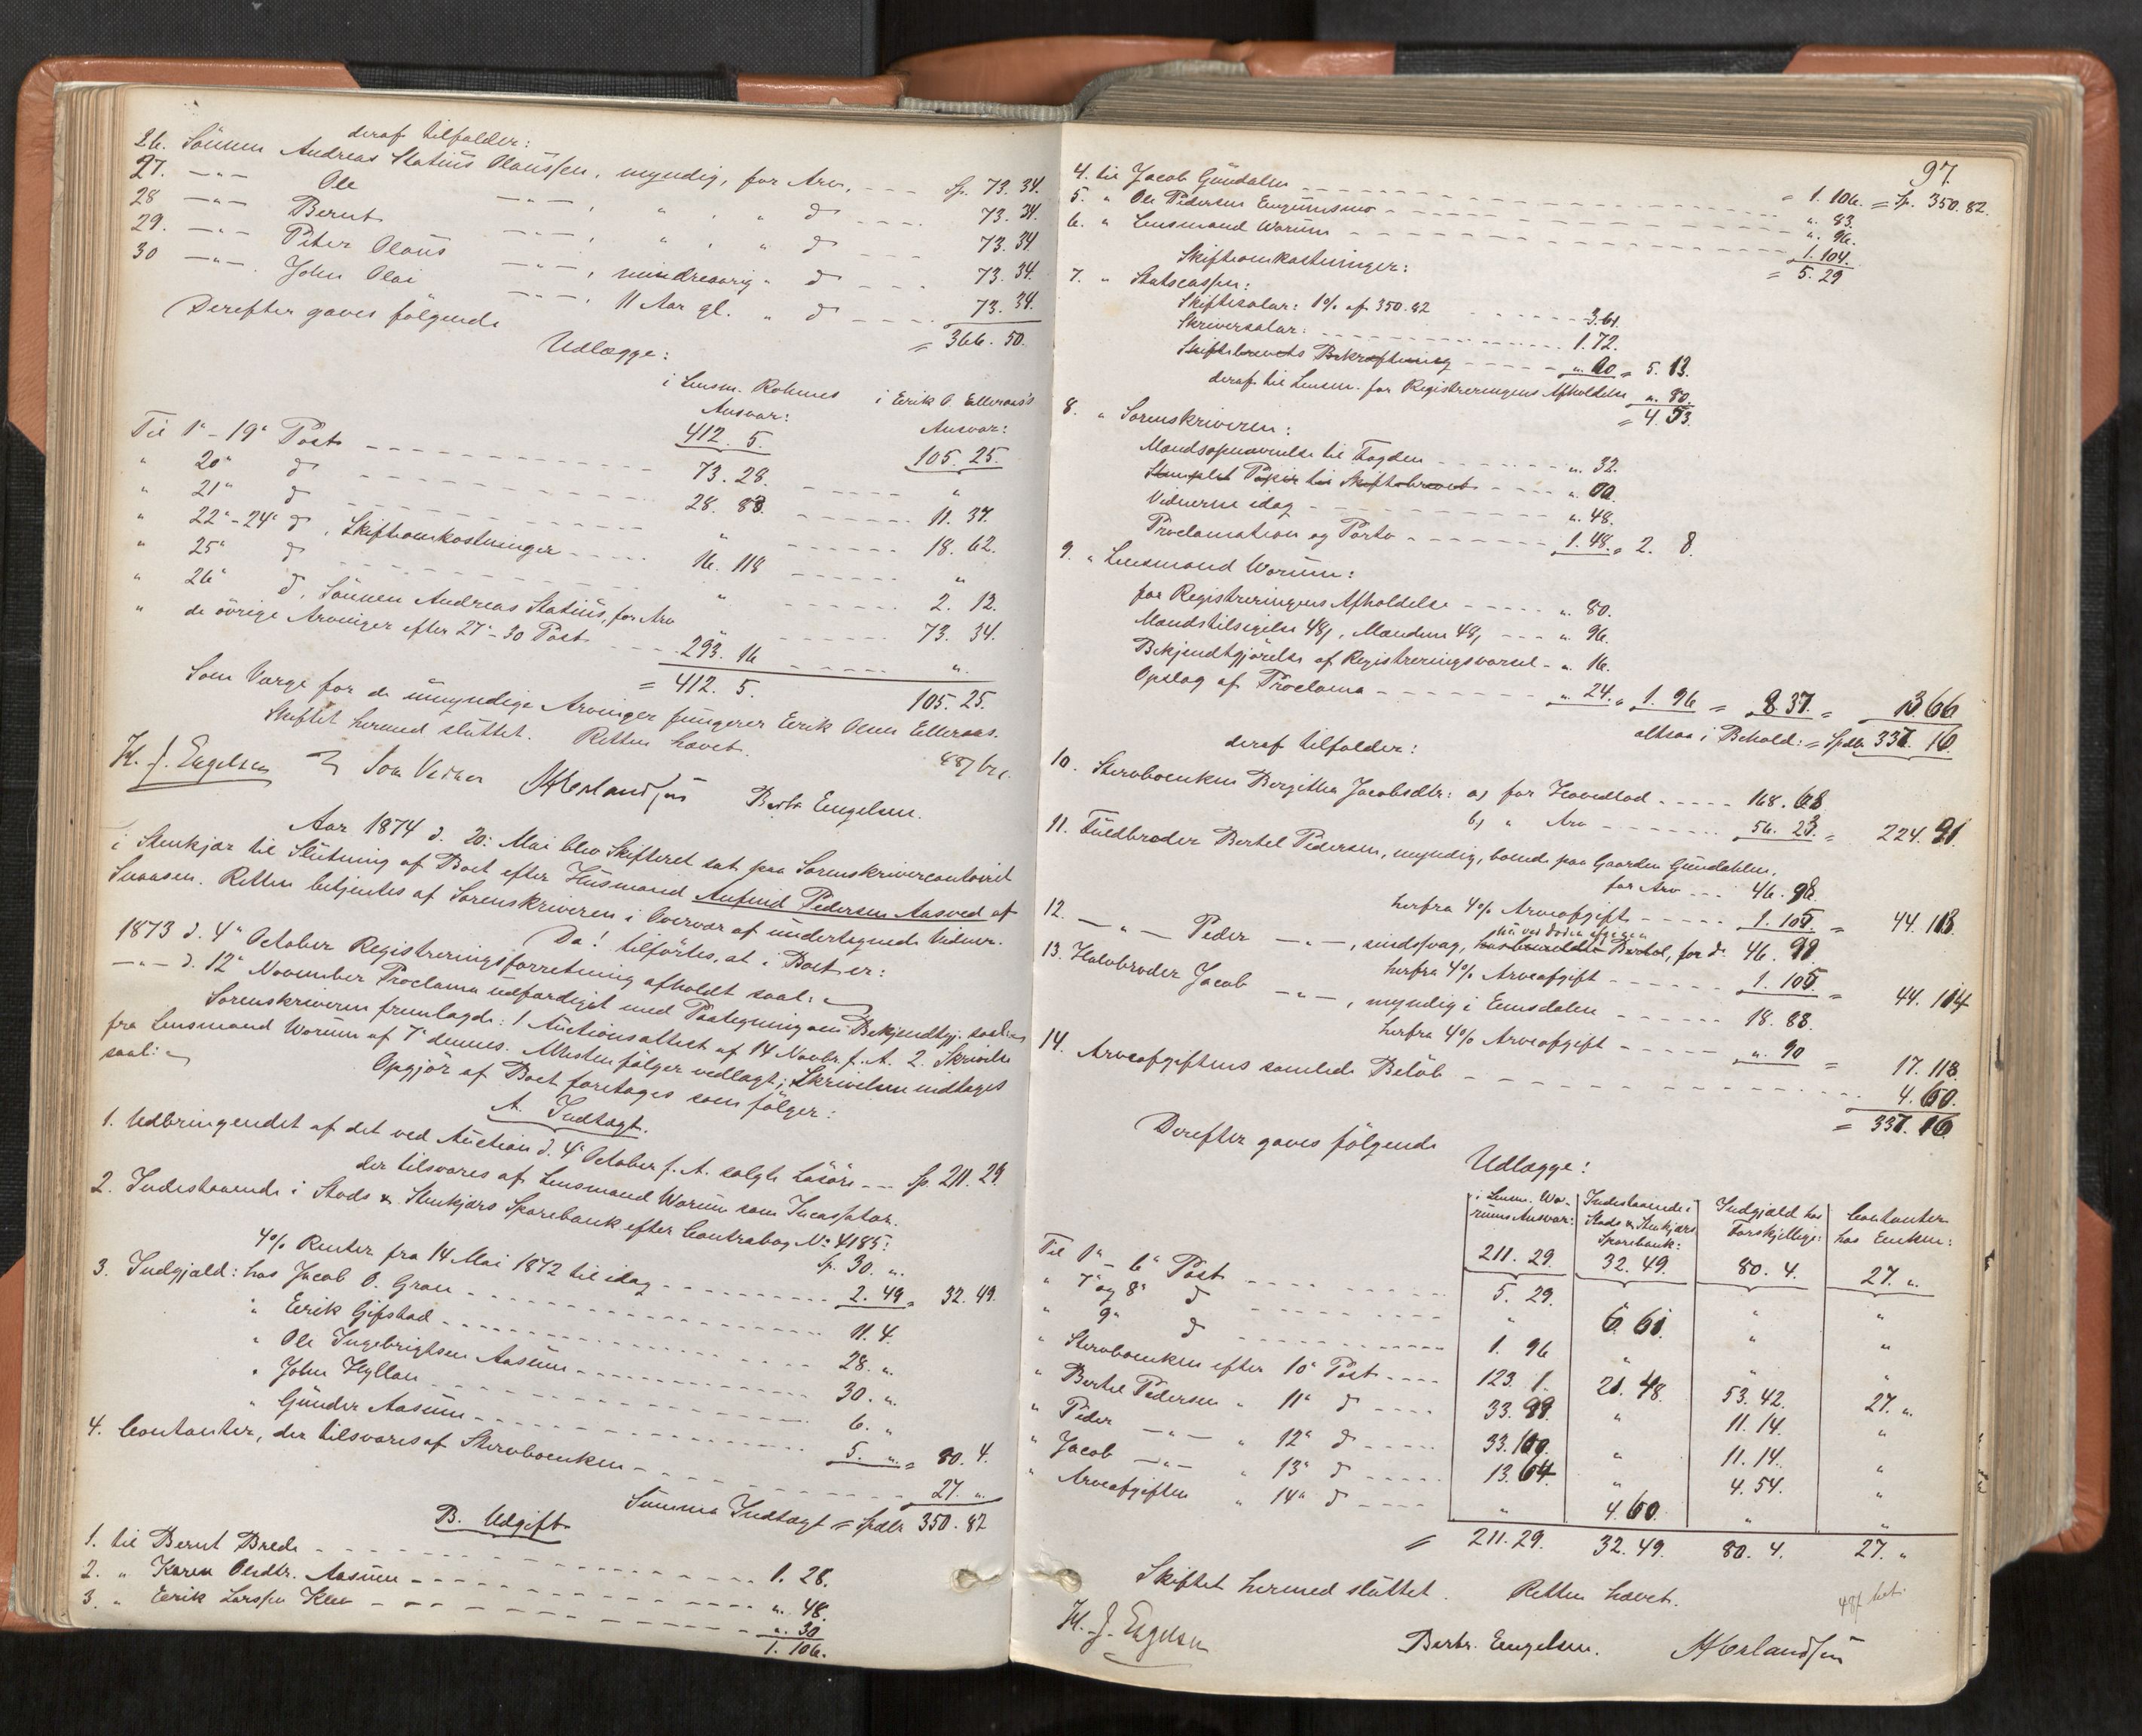 deraf tilfalder:
26. Sönnen Andreas Statius Olaussen, myndig, for Arv, - - - Sp. 73. 34.
27. —"— Ole —"—, " , " d - - - 73. 34.
28 —"— Bernt —"—, " , " d - - - 73. 34.
29. —"— Peter Olaus —"—, mindreaarig " d - - - 73. 34.
30 —"— John Olai —"—, 11 Aar gl. " d - - - 73. 34.
= 366. 50.
Derefter gaves følgende
Udlægge:
i Lensm. Rohmes Ansvar: i Erik O. Elleraas's Ansvar:
412. 5. 105. 25.
Til 1" - 19" Post - - - 73. 28. - - - "
" 20" d - - - 28. 83. - - - 11. 37.
" 21" d - - - " - - - 18. 62.
" 22" - 24" d, Skifteomkostninger - - - 16. 118 - - - "
" 25" d - - - " - - - 2. 12.
" 26" d, Sönnen Andreas Statius, for Arv " - - - 73. 34.
" de övrige Arvinger efter 27" - 30 Post - - - 293. 16 - - - "
= 412. 5. 105. 25.
Som Værge for de umyndige Arvinger fungerer Erik Olsen Elleraas.
Skiftet hermed sluttet. Retten hævet.
H. J. Engelsen Som Vidner Bertr. Engelsen.
Aar 1874 d. 20: Mai blev Skifteret sat paa Sorenskrivercontoiret
i Stenkjær til Slutning af Boet efter Husmand Anfind Pedersen Aasved af
Snaasen. Retten betjentes af Sorenskriveren i Overvær af undertegnede Vidner.
Da! tilförtes, at i Boet er:
1873 d. 4" October Registreringsforretning afholdt saal:
—"— d. 12" November Proclama udfærdiget med Paategning om Bekjendtgj. saal:
Sorenskriveren fremlagde: 1 Auctionsattest af 14 Novbr f. A. 2. Skrivelse
fra Lensmand Worum af 7" dennes. Attesten følger vedlagt; Skrivelsen indtages
saal:
Opgjör af Boet foretages som følger:
A. Indtægt.
1. Udbringendet af det ved Auction d. 4" October f. A. solgte Lösöre - - - Sp. 211. 29.
der tilsvares af Lensmand Worum som Incassator.
2. Indestaaende i Stods & Stenkjærs Sparebank efter Contrabog No 4185:
Sp. 30. "
4% Renter fra 14 Mai 1872 til idag - - - 2. 49 = 32. 49.
3. Indgjæld: hos Jacob O. Gran - - - 11. 4.
" Erik Gifstad - - - 28. "
" Ole Ingebrigtsen Aasum - - - 30. "
" John Hyllan - - - 6. "
" Gunder Aasum - - - 5. " = 80. 4.
4. Contanter, der tilsvares af Stervboenken - - - 27. "
Summa Indtægt = Spdlr 350. 82
B. Udgift
1. til Bernt Brede - - - 1. 28.
2. " Karen Olsdtr. Aasum - - - ". 48.
3. " Erik Larssen Klev - - - ". 30
1. 106.
97.
4. til Jacob Gundalen - - - = 1. 106. = Sp. 350. 82.
5. " Ole Pedersen - - - ". 83.
6. " Lensmand Worum - - - ". 96.
1. 104.
= 5. 29
Skifteomkostninger:
7. " Statscassen:
Skiftesalær: 1% af 350. 82 - - - 3. 61.
Skriversalær: - - - 1. 72.
Skiftebrevets Bekræftning - - - = 5. 13.
deraf til Lensm. for Registreringens Afholdelse ". 80.
= 4. 53.
8. " Sorenskriveren:
Mandsopnævnelse til Fogden - - - ". 32.
Stemplet Papir til Skiftebrevet - - -
Vidnerne idag - - - ". 48.
Proclamation og Porto - - - 1. 48. = 2. 8.
9. " Lensmand Worum:
for Registreringens Afholdelse - - - ". 80.
Mandstilsigelse 48 ß, Mændene 48 ß - - - ". 96.
Bekjendtgjörelse af Registreringsvarsel - ". 16.
Opslag af Proclama - - - ". 24. = 1. 96 = 8 37. = 13 66
altsaa i Behold: = Spdlr 337. 16.
deraf tilfalder:
10. Stervboenken Bergitha Jacobsdtr: a) for Hovedlod - - - 168. 68
b) " Arv - - - 56. 23. = 224. 91.
11. Fuldbroder Bertel Pedersen, myndig, boende paa Gaarden Gundahlen,
for Arv - - - 46. 98.
herfra 4% Arveafgift - - - 1. 105 = 44. 113.
12. —"— Peder —"—, sindssvag, Bertel, for d. 46. 99.
herfra 4% Arveafgift - - - 1. 105 = 44. 114
13. Halvbroder Jacob —"—, myndig i Emsdalen - - - 18. 88.
herfra 4% Arveafgift - - - ". 90 = 17. 118.
14. Arveafgiftens samlede Belöb - - - 4. 60.
= 337. 16
Derefter gaves følgende
Udlægge:
i Lensm. Worums Ansvar: Indestaaende i Stods & Stenkjærs Sparebank: Indgjæld hos Forskjellige: Contanter hos Enken:
211. 29. 32. 49. 80. 4. 27. "
Til 1" - 6" Post - - - 5. 29. " " "
" 7" og 8" d - - - " 6. 61. " "
" 9" d - - - 1. 96 " " "
" Stervboenken efter 10" Post - - - 123. 1. 21. 48. 53. 42. 27. "
" Bertel Pedersen " 11" d - - - 33. 99. " 11. 14. "
" Peder —"— " 12" d - - - 33. 100. " 11. 14. "
" Jacob —"— " 13" d - - - 13. 64. " 4. 54. "
" Arveafgiften " 14" d - - - " 4. 60. " "
= 211. 29. 32. 49. 80. 4. 27. "
Skiftet hermed sluttet. Retten hævet.
H. J. Engelsen Bertr. Engelsen.